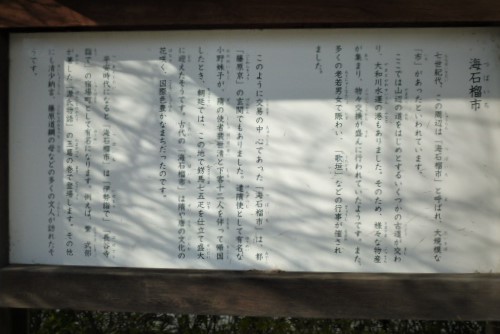 海石榴市
七世紀代、この周辺は「海石榴市」と呼ばれ、大規模な
「市」があったといわれています。
ここでは山辺の道をはじめとするいくつかの古道が交わ
り、大和川水運の港もありました。そのため、様々な物産
が集まり、物々交換が盛んに行われたようです。また、
多くの老若男女で賑わい、「歌垣」などの行事が催され
ました。
このように交易の中心であった「海石榴市」は、都
「藤原京」の玄関でもありました。遣隋使として有名な
小野妹子が、隋の使者裴世清と下客十二人を伴って帰国
したとき、朝廷では、この地で飾馬七五疋を仕立て盛大
に迎えたそうです。古代の「海石榴市」は隋や唐の文化の
花咲く、国際色豊かなまちだったのです。
平安時代になると、「海石榴市」は「伊勢詣で」「長谷寺
詣で」の宿場町として有名になります。例えば、紫式部
が著した『源氏物語』の玉鬘の巻で登場します。その他
にも清少納言、藤原道綱の母などの多くの文人が訪れたそ
うです。